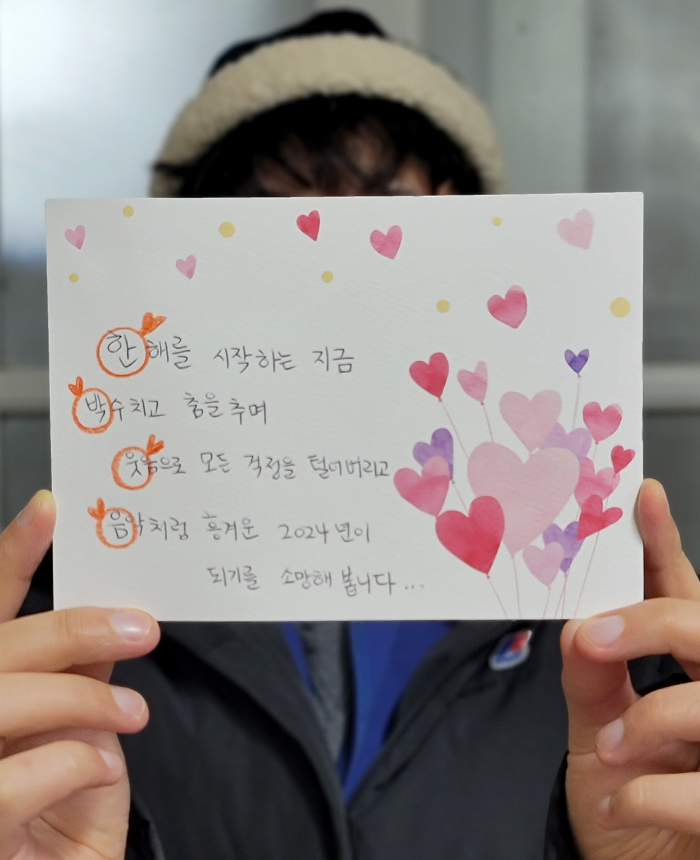 한해를 시작하는 지금
박수치고 춤을추며
웃음으로 모든 걱정을 털어버리고
음악처럼 흥겨운 2024년이
되기를 소망해 봅니다...